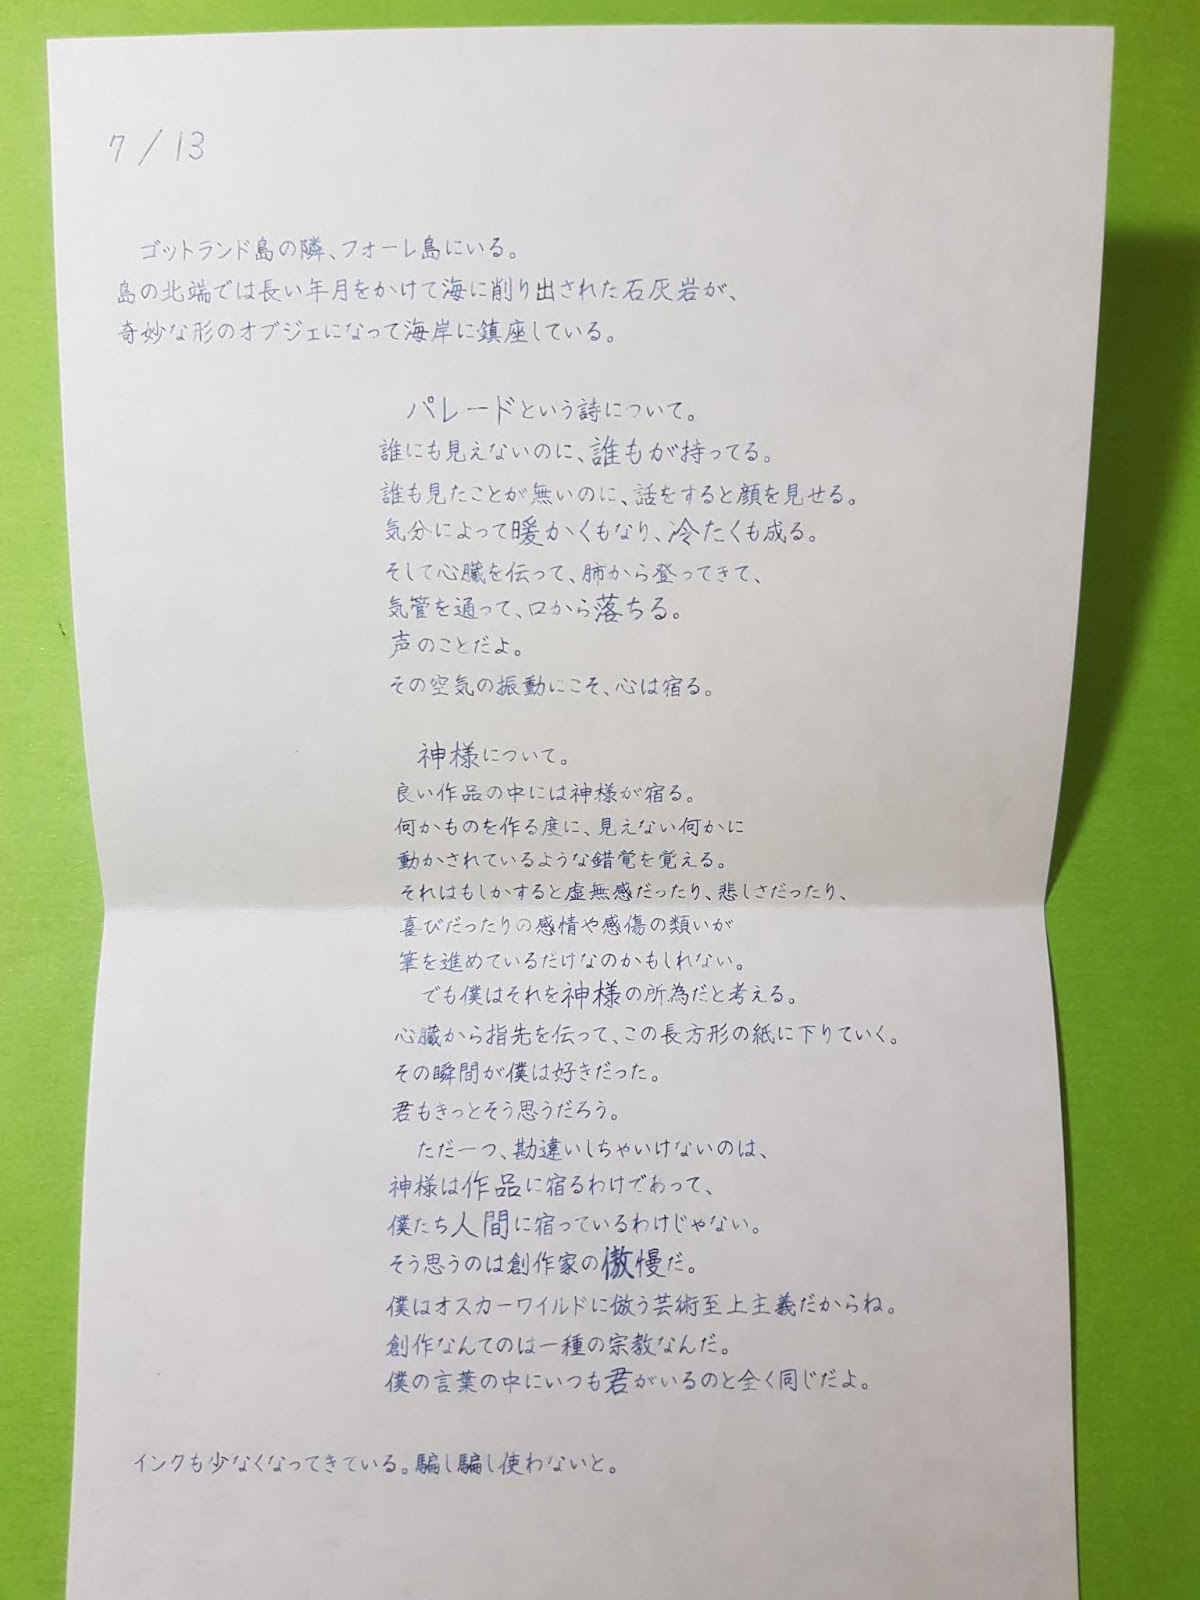 7/13
ゴットランド島の隣、フォーレ島にいる。
島の北端では長い年月をかけて海に削り出された石灰岩が、
奇妙な形のオブジェになって海岸に鎮座している。
パレードという詩について。
誰にも見えないのに、誰もが持ってる。
誰も見たことが無いのに、話をすると顔を見せる。
気分によって暖かくもなり、冷たくも成る。
そして心臓を伝って、肺から登ってきて、
気管を通って、口から落ちる。
声のことだよ。
その空気の振動にこそ、心は宿る。
神様について。
良い作品の中には神様が宿る。
何かものを作る度に、見えない何かに
動かされているような錯覚を覚える。
それはもしかすると虚無感だったり、悲しさだったり、
喜びだったりの感情や感傷の類いが
筆を進めているだけなのかもしれない。
でも僕はそれを神様の所為だと考える。
心臓から指先を伝って、この長方形の紙に下りていく。
その瞬間が僕は好きだった。
君もきっとそう思うだろう。
ただ一つ、勘違いしちゃいけないのは、
神様は作品に宿るわけであって、
僕たち人間に宿っているわけじゃない。
そう思うのは創作家の傲慢だ。
僕はオスカーワイルドに倣う芸術至上主義だからね。
創作なんてのは一種の宗教なんだ。
僕の言葉の中にいつも君がいるのと全く同じだよ。
インクも少なくなってきている。騙し騙し使わないと。